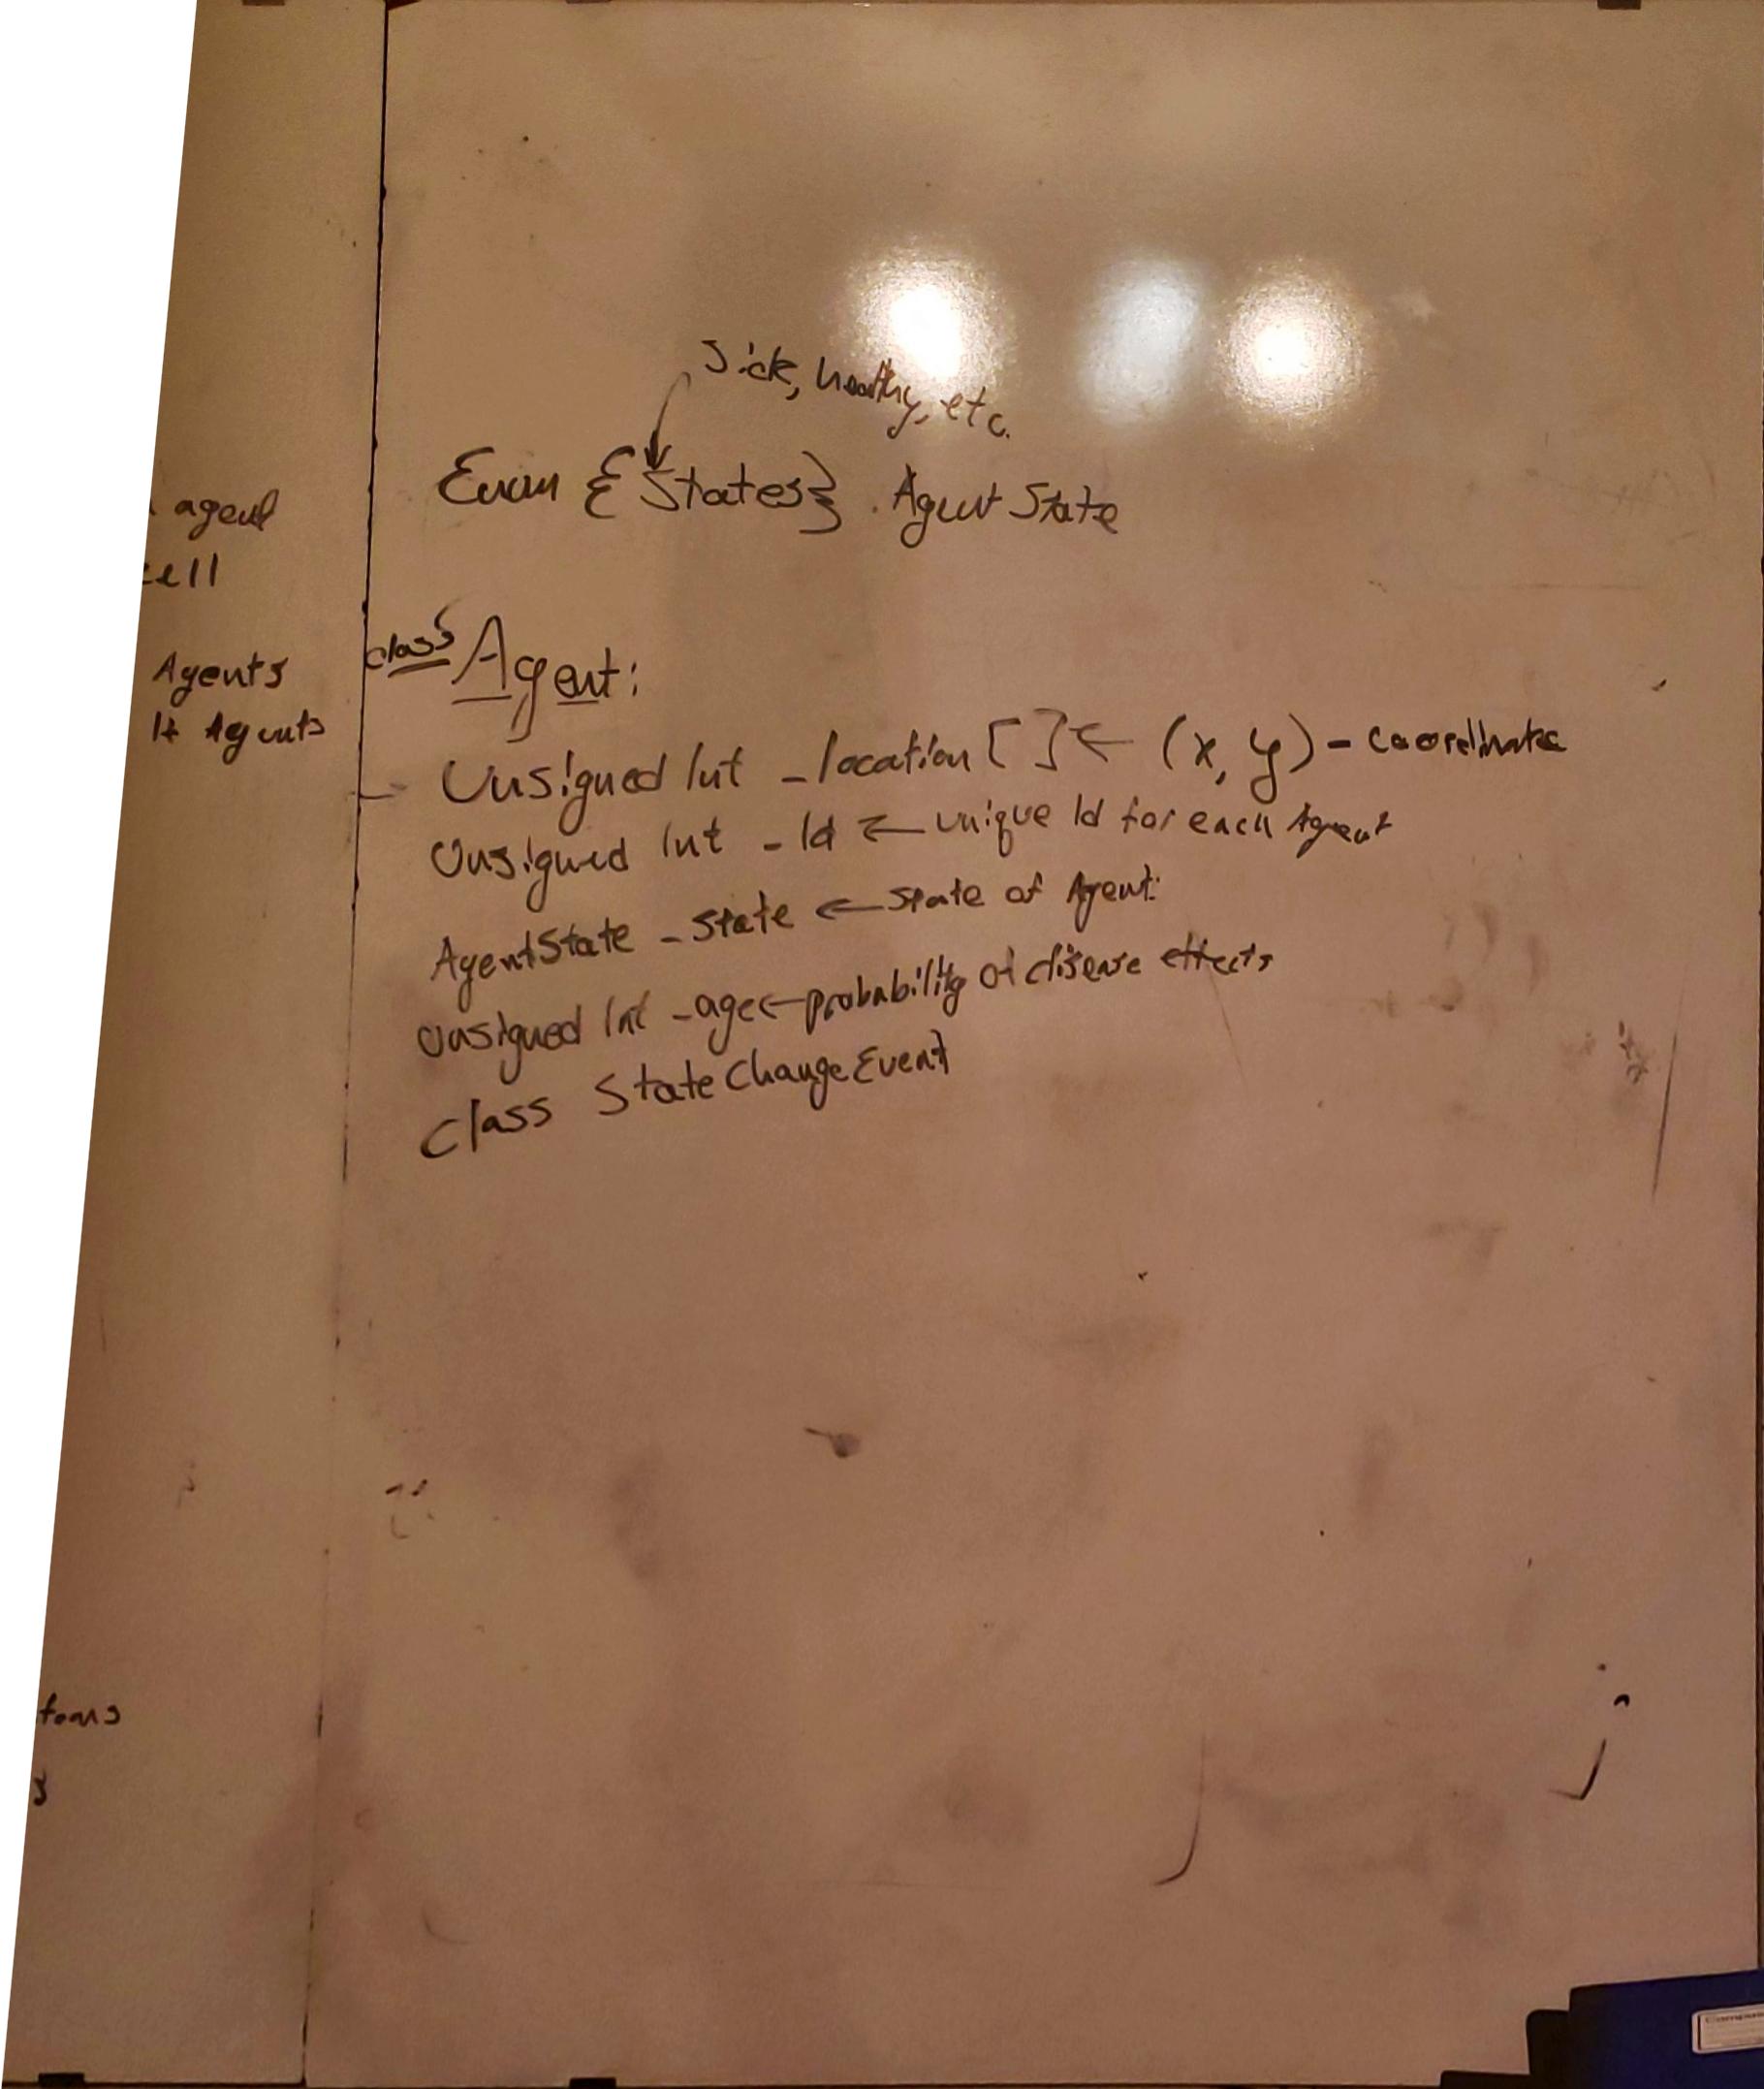 agent
cell
Agents
Agents
sick, healthy, etc.
Enum {States} AgentState
class Agent:
Unsigned Int _location [ ] ← (x, y) - coordinate
Unsigned Int _Id ← unique Id for each Agent
AgentState _state ← state of Agent:
Unsigned Int _age ← probability of disease effects
Class StateChangeEvent